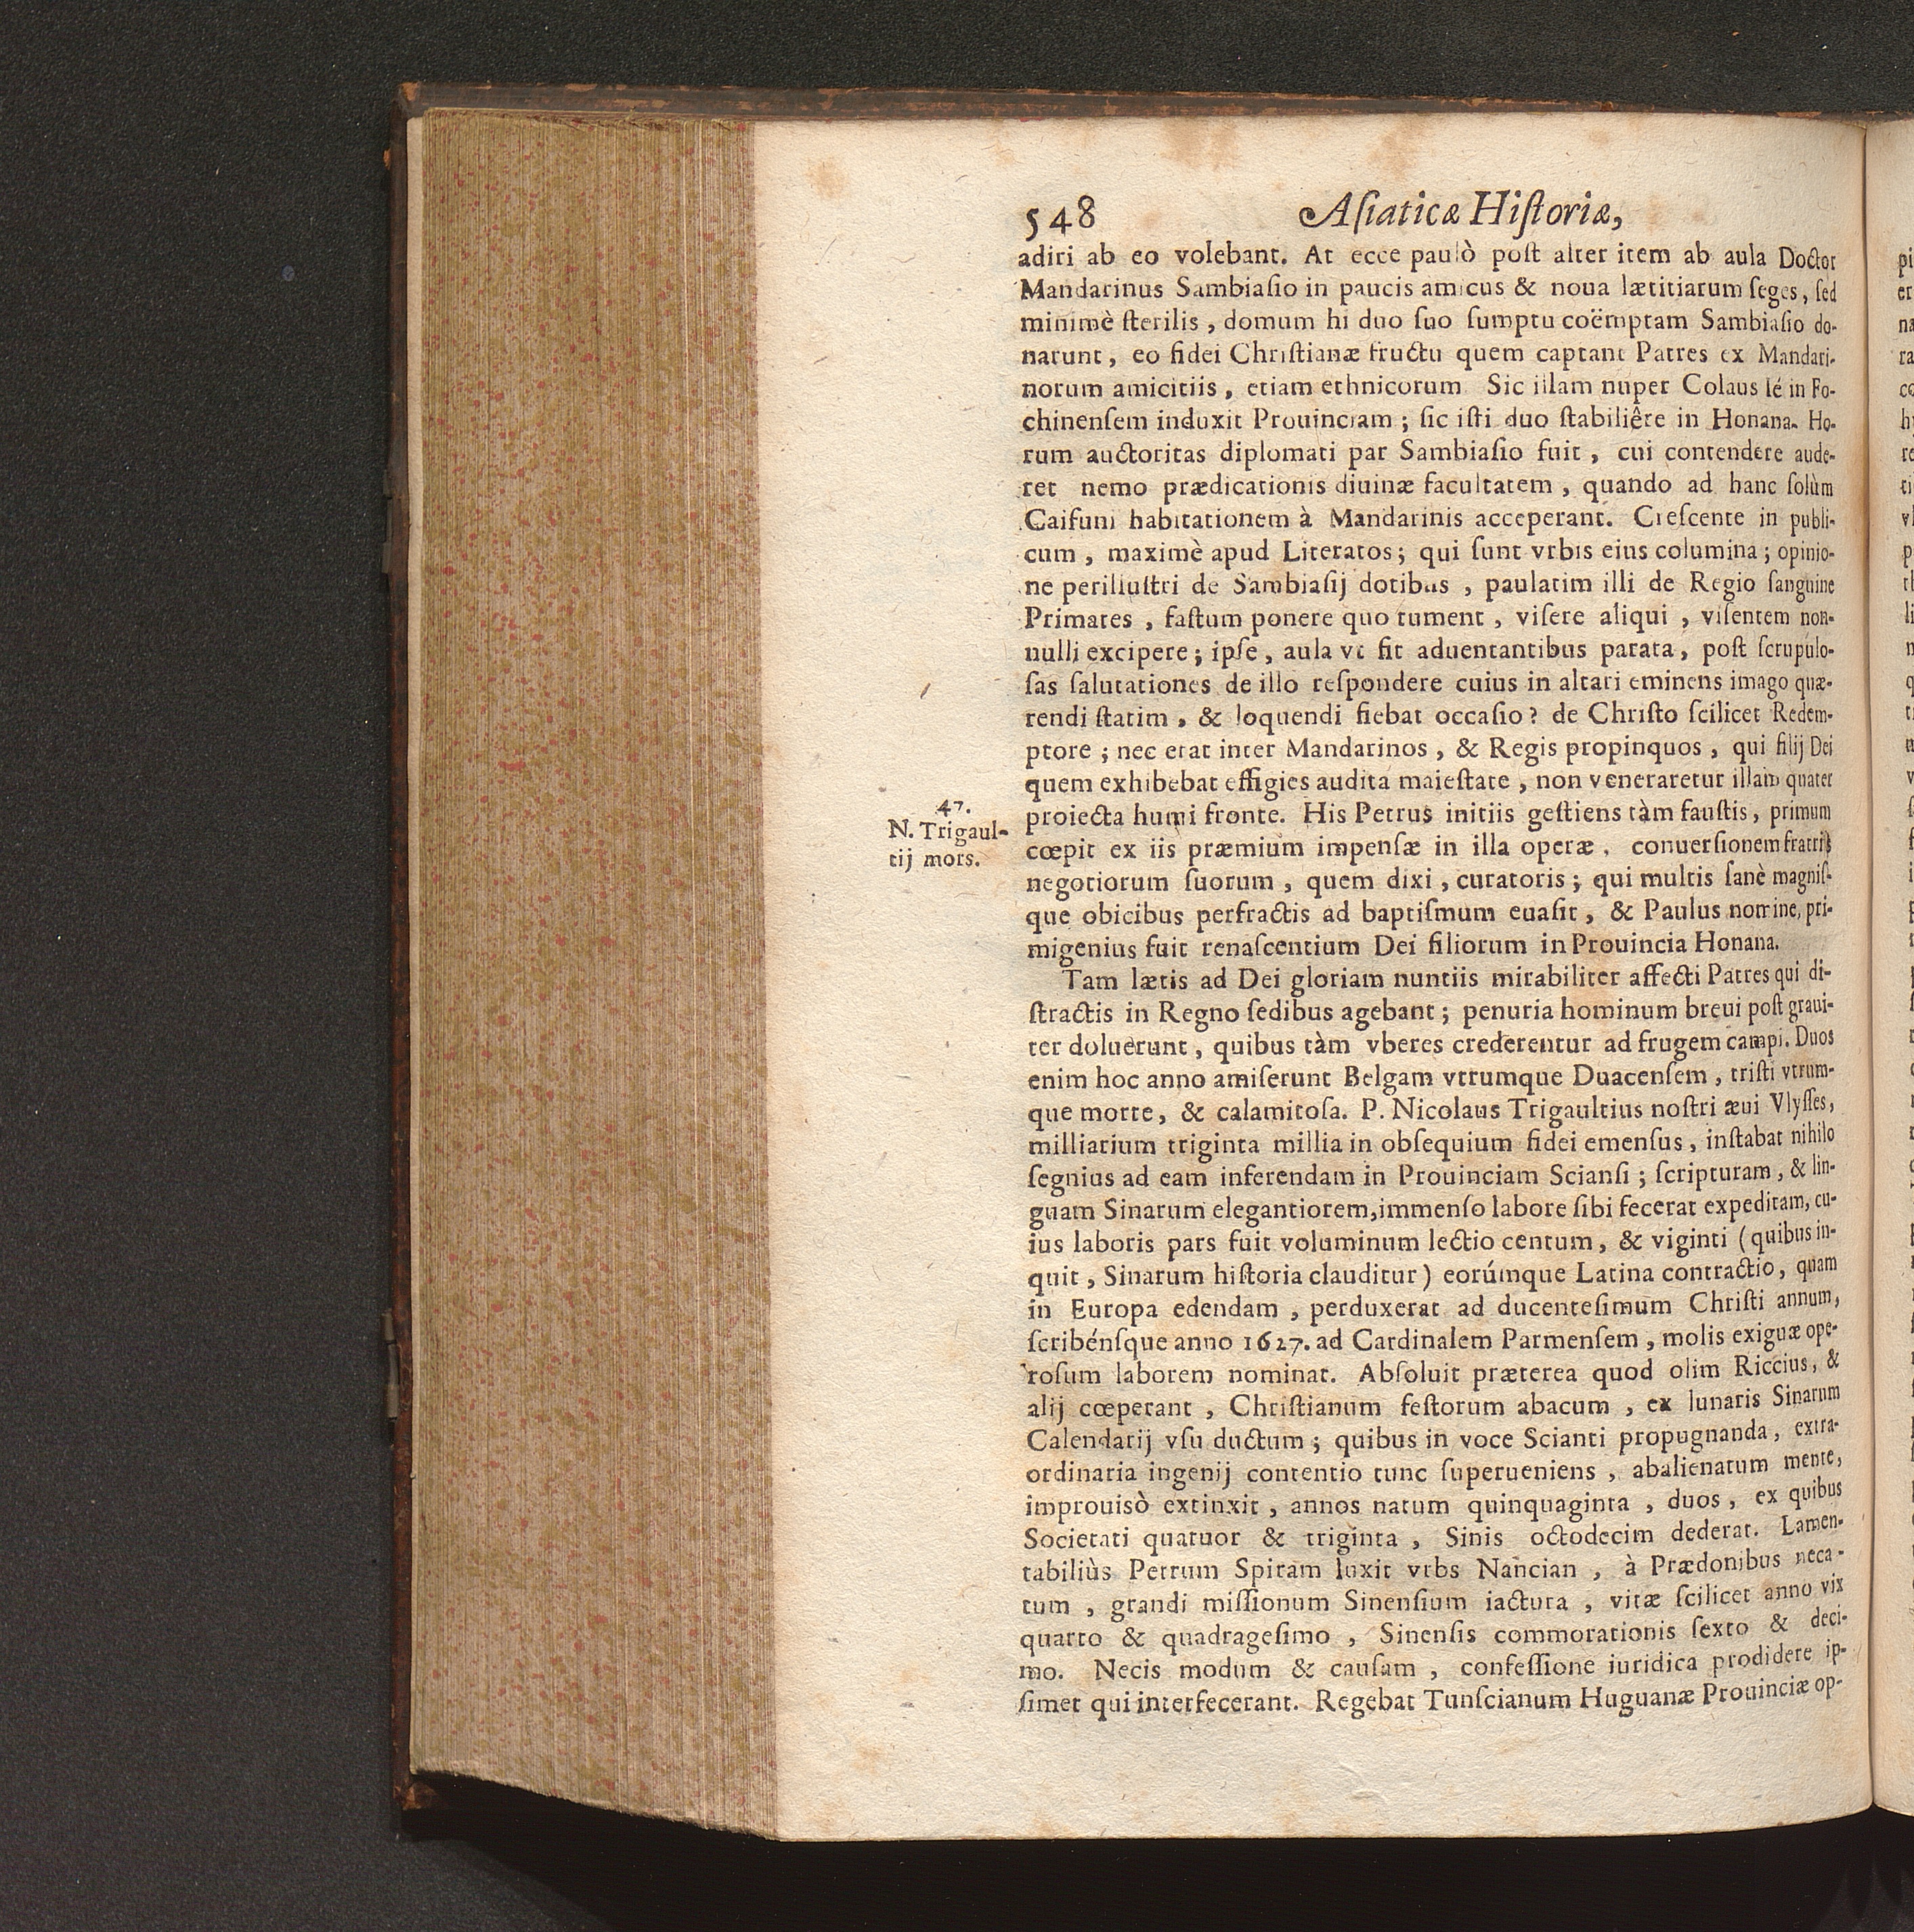 548 Asiaticæ Historiæ,
adiri ab eo volebant. At ecce paulò post alter item ab aula Doctor
Mandarinus Sambiasio in paucis amicus & noua lætitiarum seges, sed
minimè sterilis, domum hi duo suo sumptu coëmptam Sambiasio do-
narunt, eo fidei Christianæ fructu quem captant Patres ex Mandari-
norum amicitiis, etiam ethnicorum Sic illam nuper Colaus Ié in Fo-
chinensem induxit Prouinciam; sic isti duo stabiliêre in Honana. Ho-
rum auctoritas diplomati par Sambiasio fuit, cui contendere aude-
ret nemo prædicationis diuinæ facultatem, quando ad hanc solùm
Caifuni habitationem à Mandarinis acceperant. Crescente in publi-
cum, maximè apud Literatos; qui sunt vrbis eius columina; opinio-
ne perillustri de Sambiasij dotibus, paulatim illi de Regio sanguine
Primates, fastum ponere quo tument, visere aliqui, visentem non-
nulli excipere; ipse, aula vt fit aduentantibus parata, post scrupulo-
sas salutationes de illo respondere cuius in altari eminens imago quæ-
rendi statim, & loquendi fiebat occasio? de Christo scilicet Redem-
ptore; nec erat inter Mandarinos, & Regis propinquos, qui filij Dei
quem exhibebat effigies audita maiestate, non veneraretur illam quater
proiecta humi fronte. His Petrus initiis gestiens tàm faustis, primum
cœpit ex iis præmium impensæ in illa operæ, conuersionem fratris
negotiorum suorum, quem dixi, curatoris; qui multis sanè magnis-
que obicibus perfractis ad baptismum euasit, & Paulus nomine, pri-
migenius fuit renascentium Dei filiorum in Prouincia Honana.
47.
N. Trigaul-
tij mors.
Tam lætis ad Dei gloriam nuntiis mirabiliter affecti Patres qui di-
stractis in Regno sedibus agebant; penuria hominum breui post graui-
ter doluerunt, quibus tàm vberes crederentur ad frugem campi. Duos
enim hoc anno amiserunt Belgam vtrumque Duacensem, tristi vtrum-
que morte, & calamitosa. P. Nicolaus Trigaultius nostri æui Vlysses,
milliarium triginta millia in obsequium fidei emensus, instabat nihilo
segnius ad eam inferendam in Prouinciam Sciansi; scripturam, & lin-
guam Sinarum elegantiorem, immenso labore sibi fecerat expeditam, cu-
ius laboris pars fuit voluminum lectio centum, & viginti (quibus in-
quit, Sinarum historia clauditur) eorúmque Latina contractio, quam
in Europa edendam, perduxerat ad ducentesimum Christi annum,
scribénsque anno 1627. ad Cardinalem Parmensem, molis exiguæ ope-
rosum laborem nominat. Absoluit præterea quod olim Riccius, &
alij cœperant, Christianum festorum abacum, ex lunaris Sinarum
Calendarij vsu ductum; quibus in voce Scianti propugnanda, extra-
ordinaria ingenij contentio tunc superueniens, abalienatum mente,
improuisò extinxit, annos natum quinquaginta, duos, ex quibus
Societati quatuor & triginta, Sinis octodecim dederat. Lamen-
tabiliùs Petrum Spiram luxit vrbs Nancian, à Prædonibus neca-
tum, grandi missionum Sinensium iactura, vitæ scilicet anno vix
quarto & quadragesimo, Sinensis commorationis sexto & deci-
mo. Necis modum & causam, confessione iuridica prodidere ip-
simet qui interfecerant. Regebat Tunscianum Huguanæ Prouinciæ op-